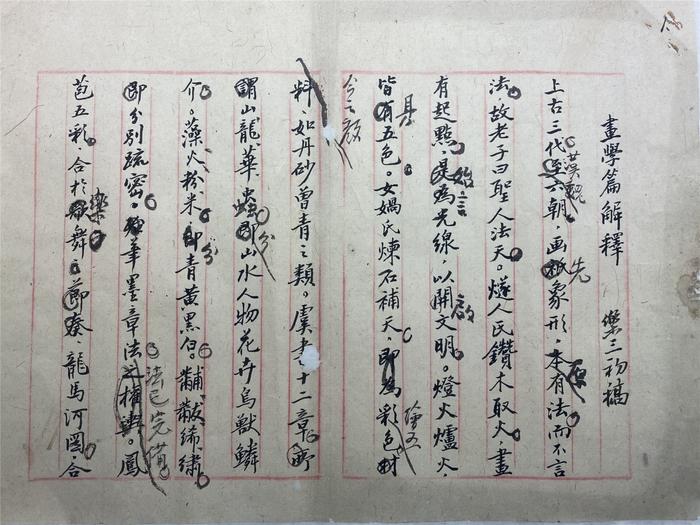 畫學篇解釋 樂三初稿
上古三代至六朝，画祇象形，本有法而不言
漢魏 先 原
法，故老子曰聖人法天。燧人氏鑽木取火，畫
有起點，是為光線，以開文明。燈火爐火，
始言 啟
皆有五色。女媧氏煉石補天，即為彩色材
具
今之顏
料，如丹砂曾青之類。虞書十二章，所
謂山龍華蟲，即山水人物花卉鳥獸鱗
分
介。藻火粉米，即青黃黑白。黼黻絺繡，
分
即分別疏密。筆墨章法之權輿。鳳
法已完備
苞五彩，合於歌舞之節奏，龍馬河圖，合
樂